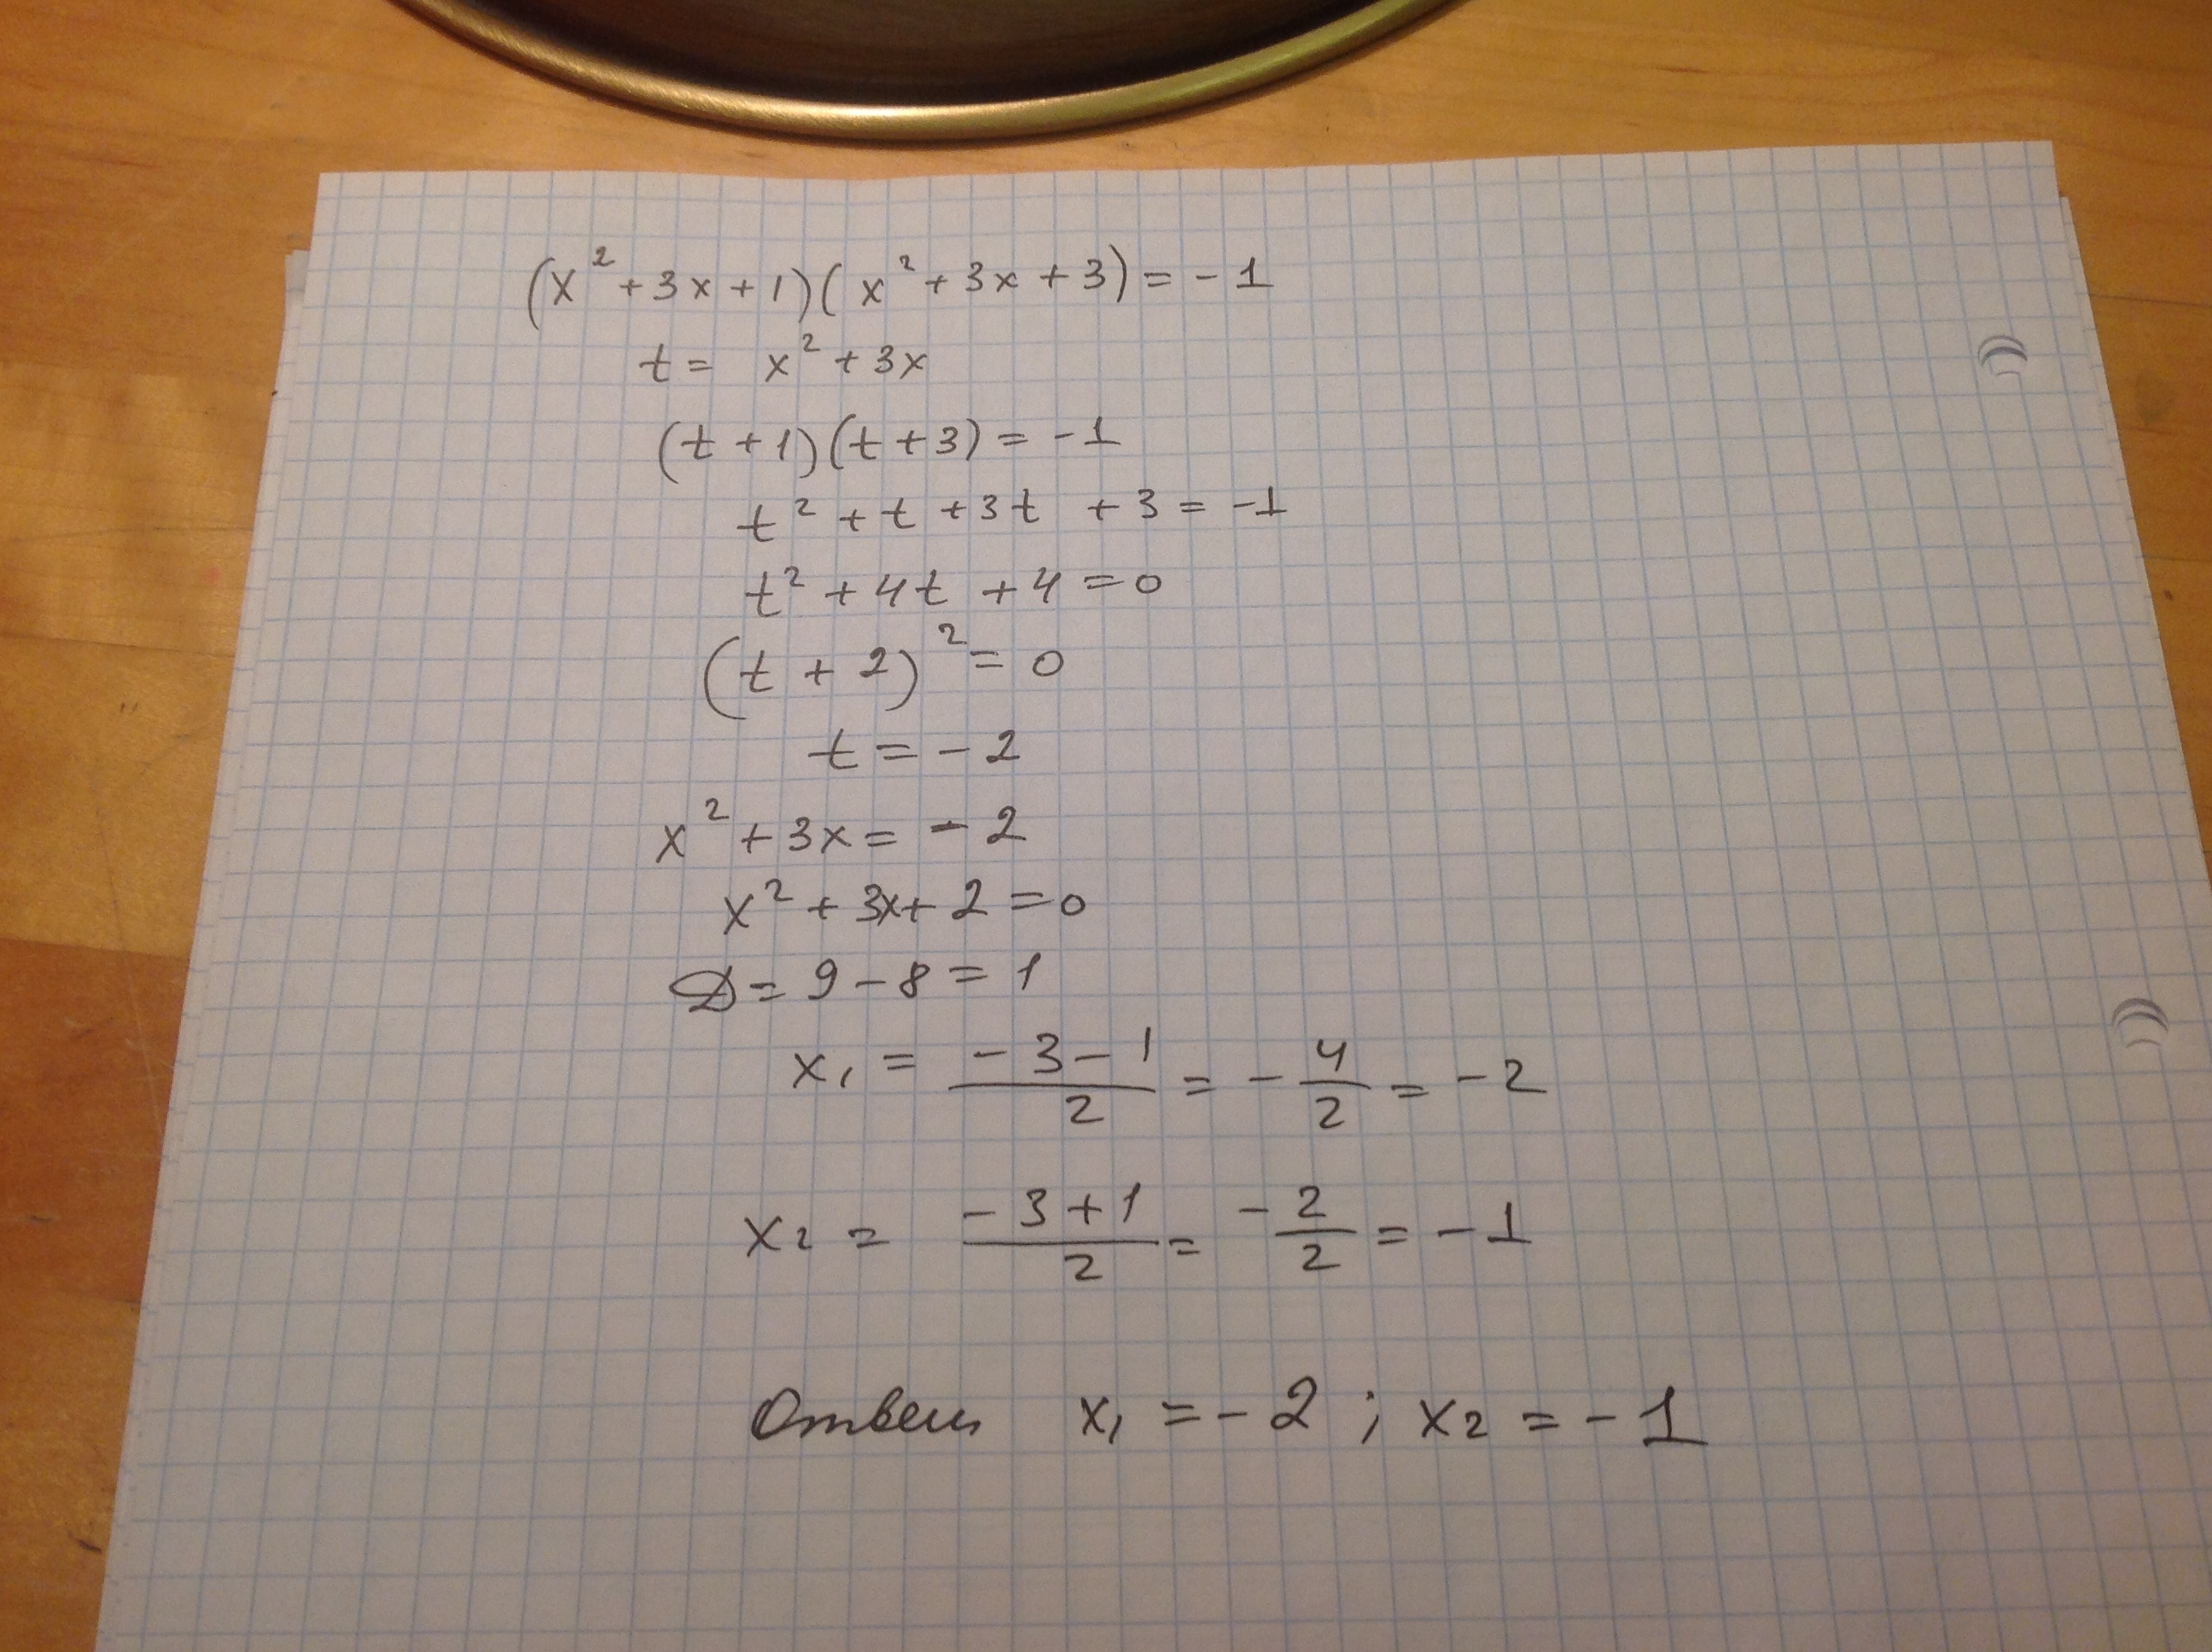 (x² + 3x + 1)(x² + 3x + 3) = -1
t = x² + 3x
(t + 1)(t + 3) = -1
t² + t + 3t + 3 = -1
t² + 4t + 4 = 0
(t + 2)² = 0
t = -2
x² + 3x = -2
x² + 3x + 2 = 0
D = 9 - 8 = 1
x₁ = (-3 - 1)/2 = -4/2 = -2
x₂ = (-3 + 1)/2 = -2/2 = -1
Ответ x₁ = -2 ; x₂ = -1